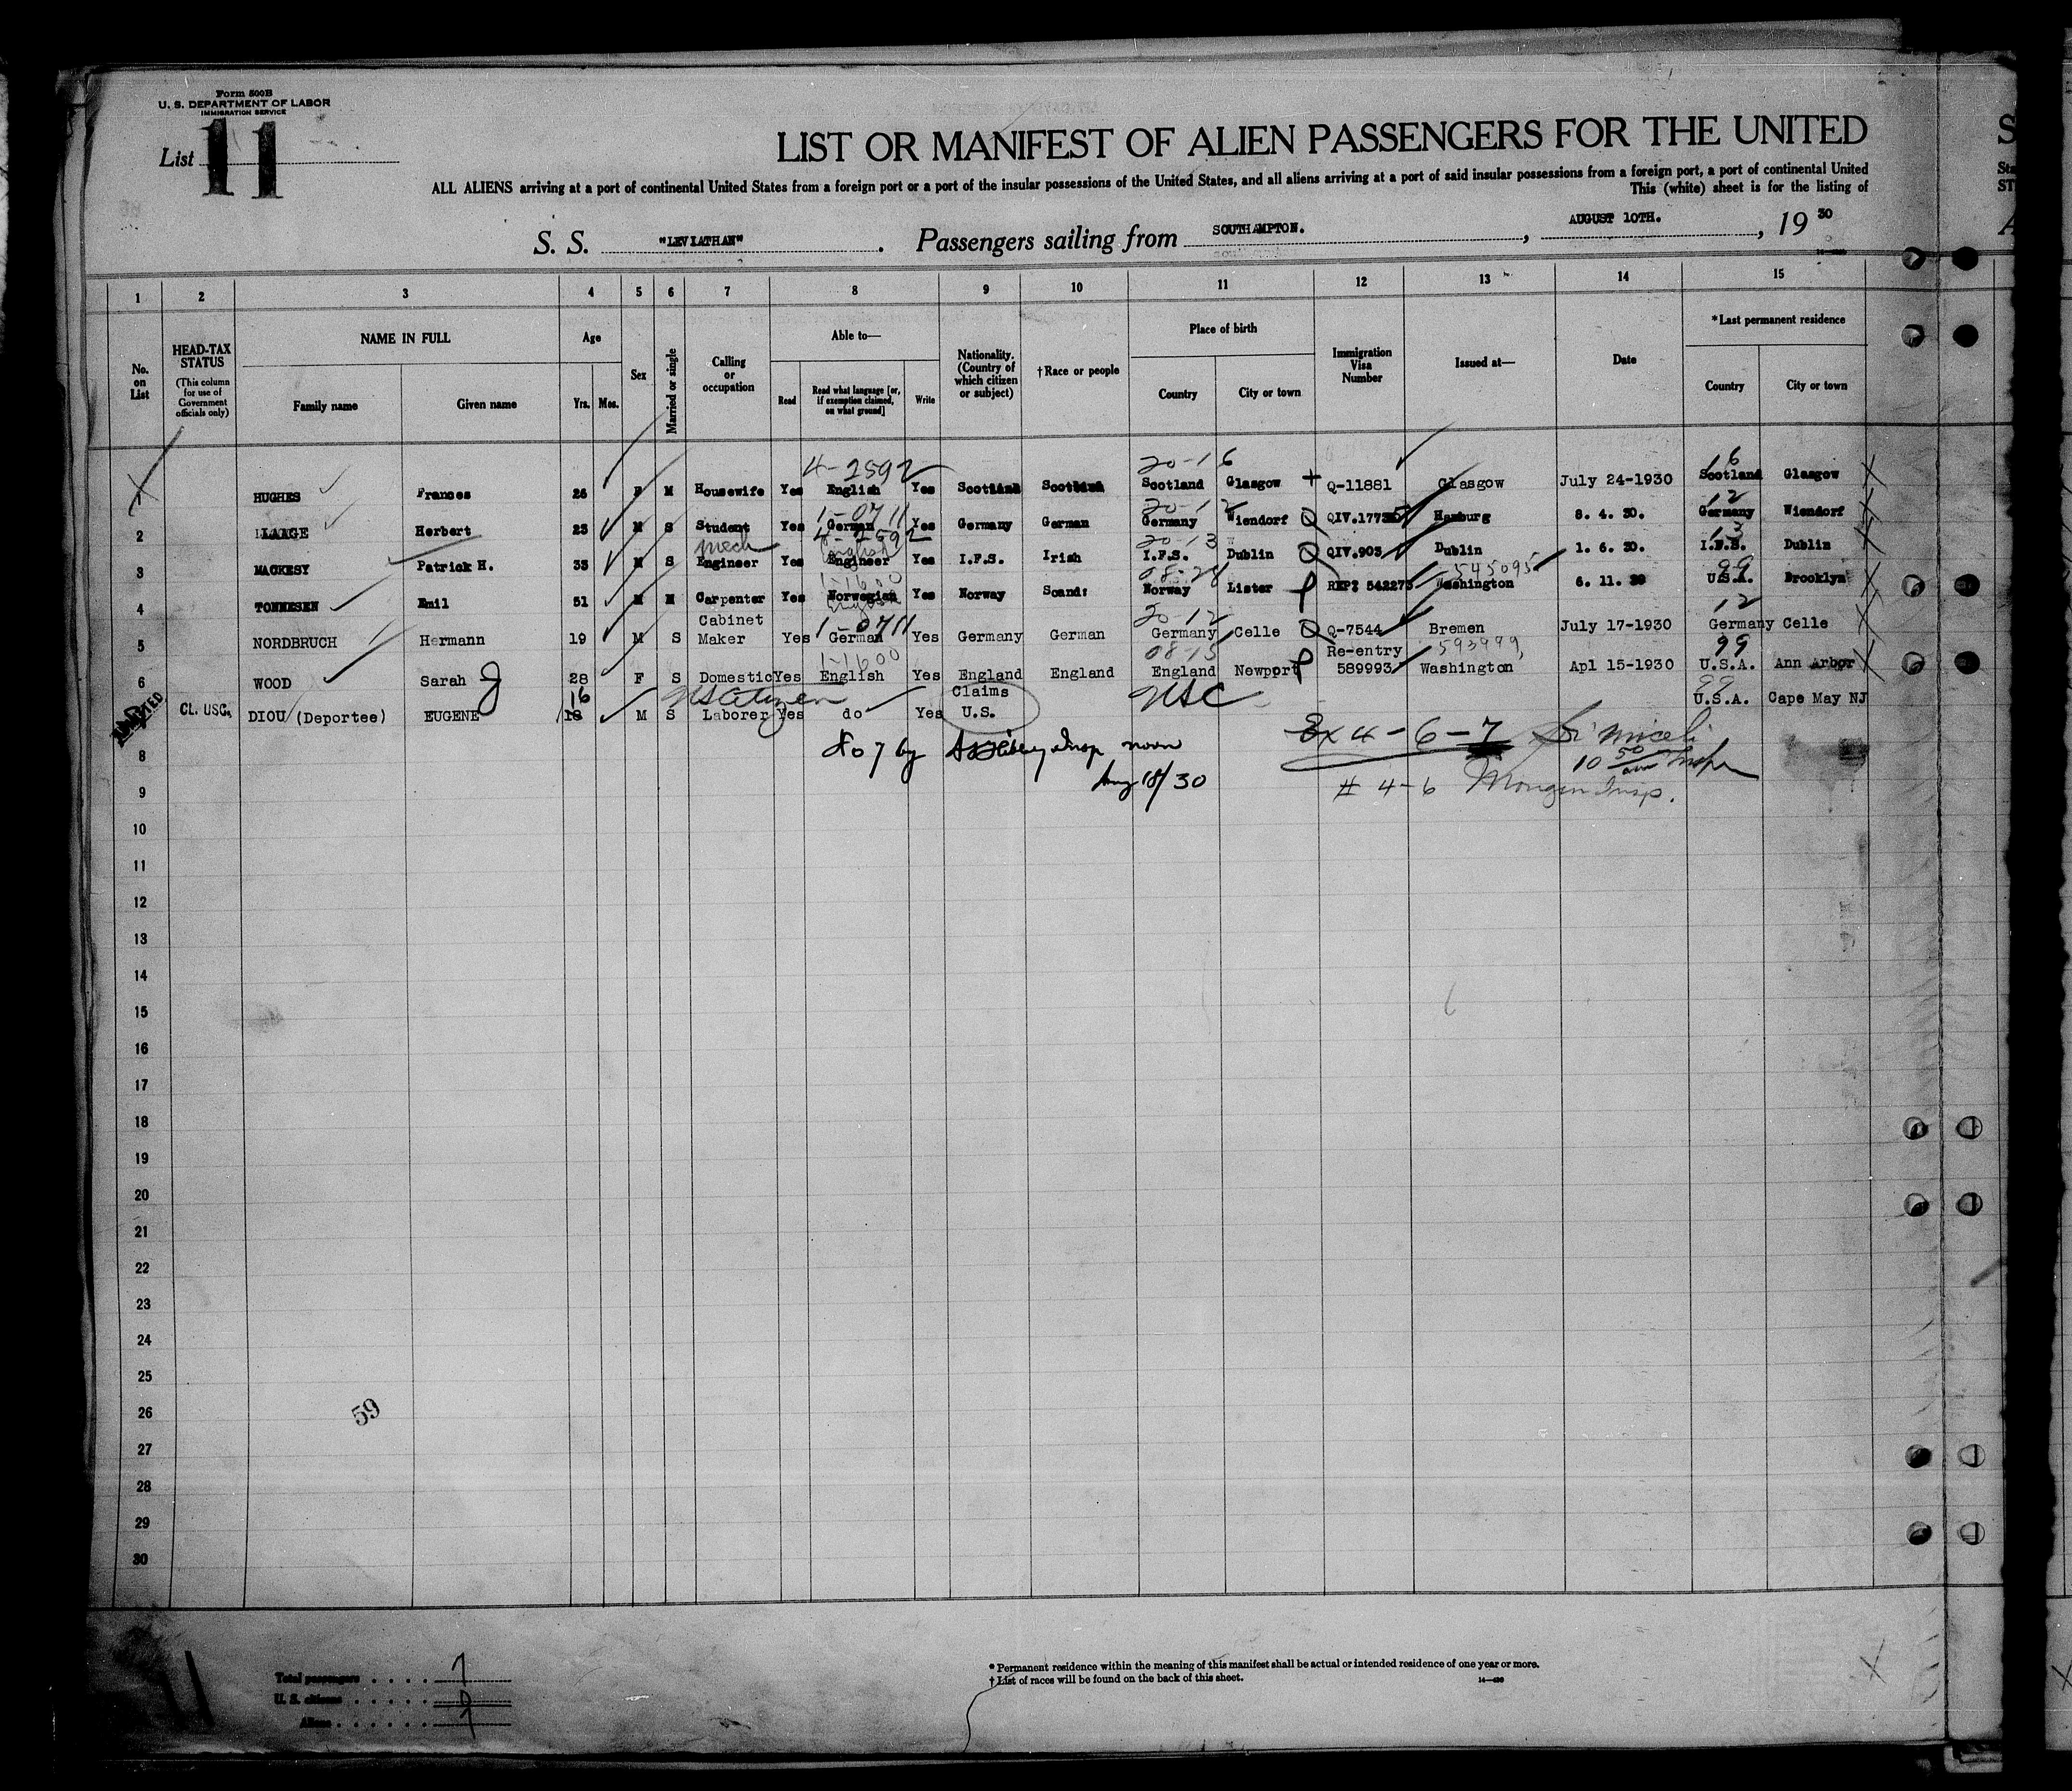 Form 500B
U. S. DEPARTMENT OF LABOR
IMMIGRATION SERVICE
List 11
LIST OR MANIFEST OF ALIEN PASSENGERS FOR THE UNITED
ALL ALIENS arriving at a port of continental United States from a foreign port or a port of the insular possessions of the United States, and all aliens arriving at a port of said insular possessions from a foreign port, a port of continental United
This (white) sheet is for the listing of
S. S. "LEVIATHAN" . Passengers sailing from SOUTHAMPTON. , AUGUST 10TH. , 19 30
1 2 3 4 5 6 7 8 9 10 11 12 13 14 15
No. on List
HEAD-TAX STATUS (This column for use of Government officials only)
NAME IN FULL
Family name Given name
Age
Yrs. Mos.
Sex
Married or single
Calling or occupation
Able to—
Read Read what language [or, if exemption claimed, on what ground] Write
Nationality. (Country of which citizen or subject)
†Race or people
Place of birth
Country City or town
Immigration Visa Number
Issued at—
Date
*Last permanent residence
Country City or town
4-2592 20-16 16
HUGHES Frances 26 F M Housewife Yes English Yes Scotland Scottish Scotland Glasgow Q-11881 Glasgow July 24-1930 Scotland Glasgow
1-0711 20-12 12
2 LAAGE Herbert 23 M S Student Yes German Yes Germany German Germany Wiendorf QIV.17735 Hamburg 8. 4. 30. Germany Wiendorf
mech 4-2592 English 20-13 13
3 MACKESY Patrick H. 33 M S Engineer Yes Engineer Yes I.F.S. Irish I.F.S. Dublin QIV.903 Dublin 1. 6. 30. I.F.S. Dublin
1-1600 08-24 545095 99
4 TONNESEN Emil 51 M M Carpenter Yes Norwegian Yes Norway Scand: Norway Lister REP: 542273 Washington 6. 11. 30 U.S.A. Brooklyn
English
1-0711 20-12 12
5 NORDBRUCH Hermann 19 M S Cabinet Maker Yes German Yes Germany German Germany Celle Q-7544 Bremen July 17-1930 Germany Celle
1-1600 08-15 593999 99
6 WOOD Sarah J 28 F S Domestic Yes English Yes England England England Newport Re-entry 589993 Washington Apl 15-1930 U.S.A. Ann Arbor
16 US Citizen USC 99
ADMITTED CL. USC. DIOU (Deportee) EUGENE 18 M S Laborer Yes do Yes Claims U.S. U.S.A. Cape May NJ
No 7 by Insp noon
Aug 18/30
Ex 4-6-7
10 50 am Insp
# 4-6 Insp.
8
9
10
11
12
13
14
15
16
17
18
19
20
21
22
23
24
25
26
27
28
29
30
59
Total passengers . . . . 7
U. S. citizens . . . . .
Aliens . . . . . .
* Permanent residence within the meaning of this manifest shall be actual or intended residence of one year or more.
† List of races will be found on the back of this sheet.
14—420